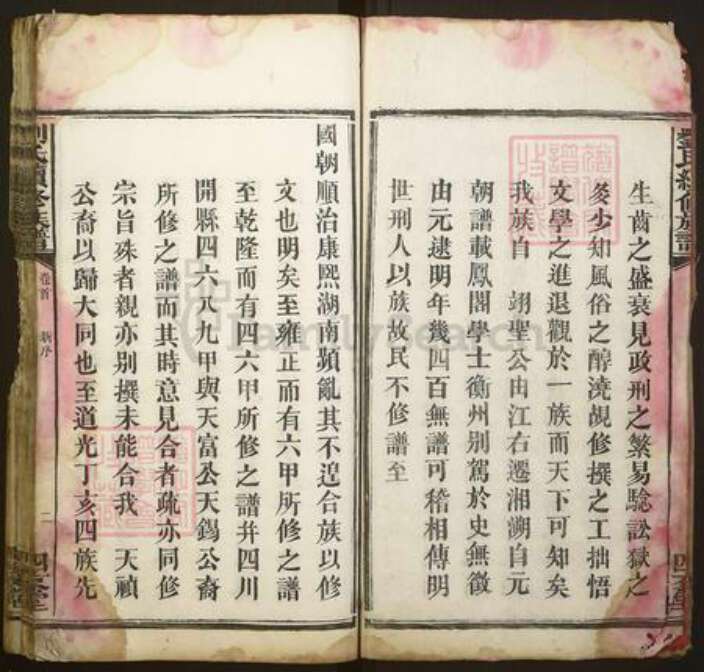 生齒之盛衰見政刑之繁易騐訟獄之
多少知風俗之醇澆覘修撰之工拙悟
文學之進退觀於一族而天下可知矣
我族自 翊聖公由江右遷湘溯自元
朝譜載鳳閣學士衡州別駕於史無徵
由元逮明年幾四百無譜可稽相傳明
世刑人以族故民不修譜至
國朝順治康熙湖南頻亂其不遑合族以修
文也明矣至雍正而有六甲所修之譜
至乾隆而有四六甲所修之譜并四川
開縣四六八九甲與天富公天錫公裔
所修之譜而其時意見合者疏亦同修
宗旨殊者親亦別撰未能合我 天禎
公裔以歸大同也至道光丁亥四族先
劉氏續修族譜
卷首 新序
二
FamilySearch